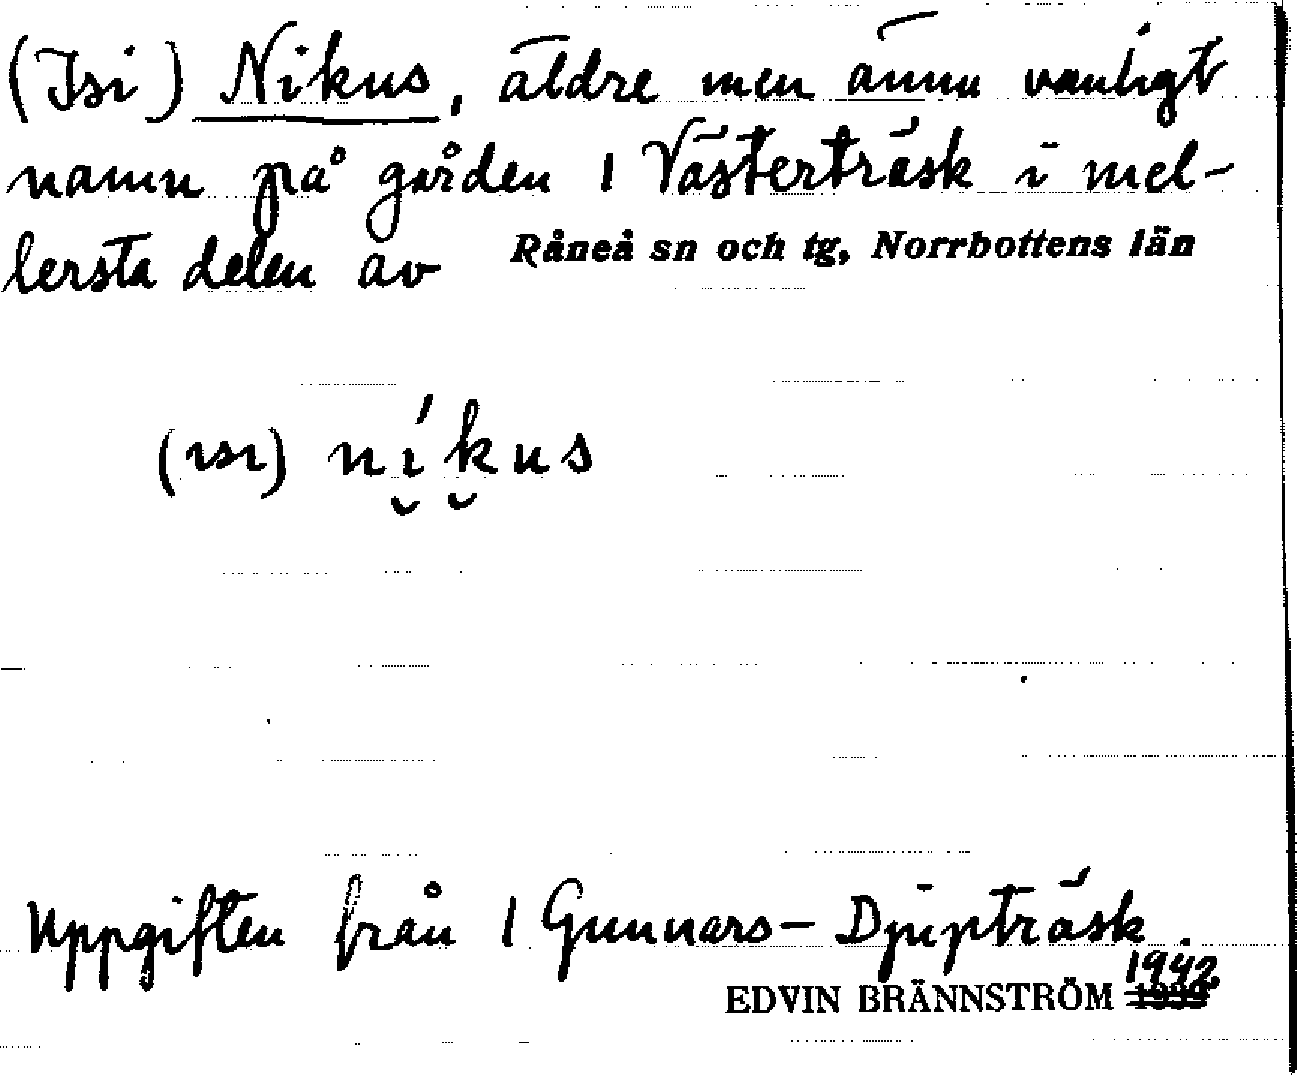 (Isi) Nikus, äldre men ännu vanligt
namn på gården 1 Västerträsk i mel-
lersta delen av Råneå sn och tg, Norrbottens län
(ısı) nı́kus
Uppgiften från 1 Gunnars-Djupträsk.
1942.
EDVIN BRÄNNSTRÖM 1939